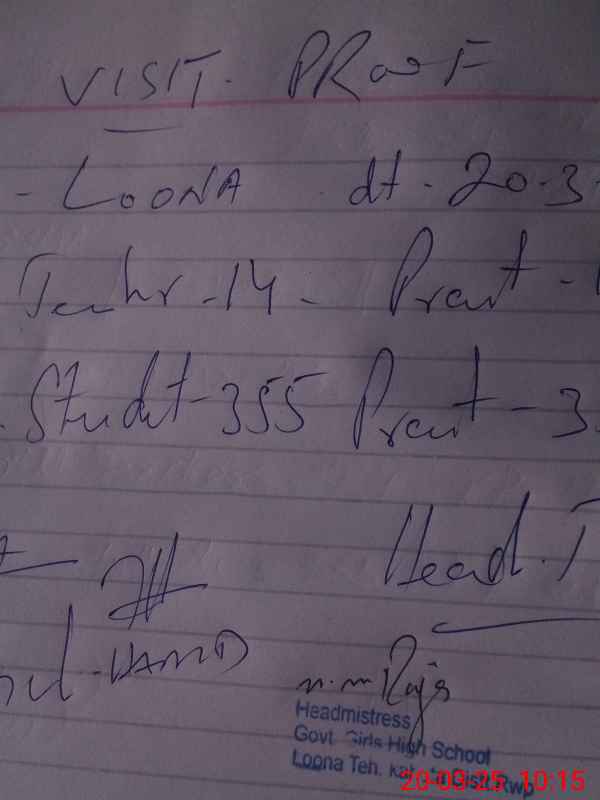 VISIT. PROOF
- LOONA dt - 20-3
Teachr - 14 - Presnt -
Studnt - 355 Presnt - 3
Head.T
HAMID
Headmistress
Govt. Girls High School
Loona Teh. Distt Rwp
20-09-25 10:15